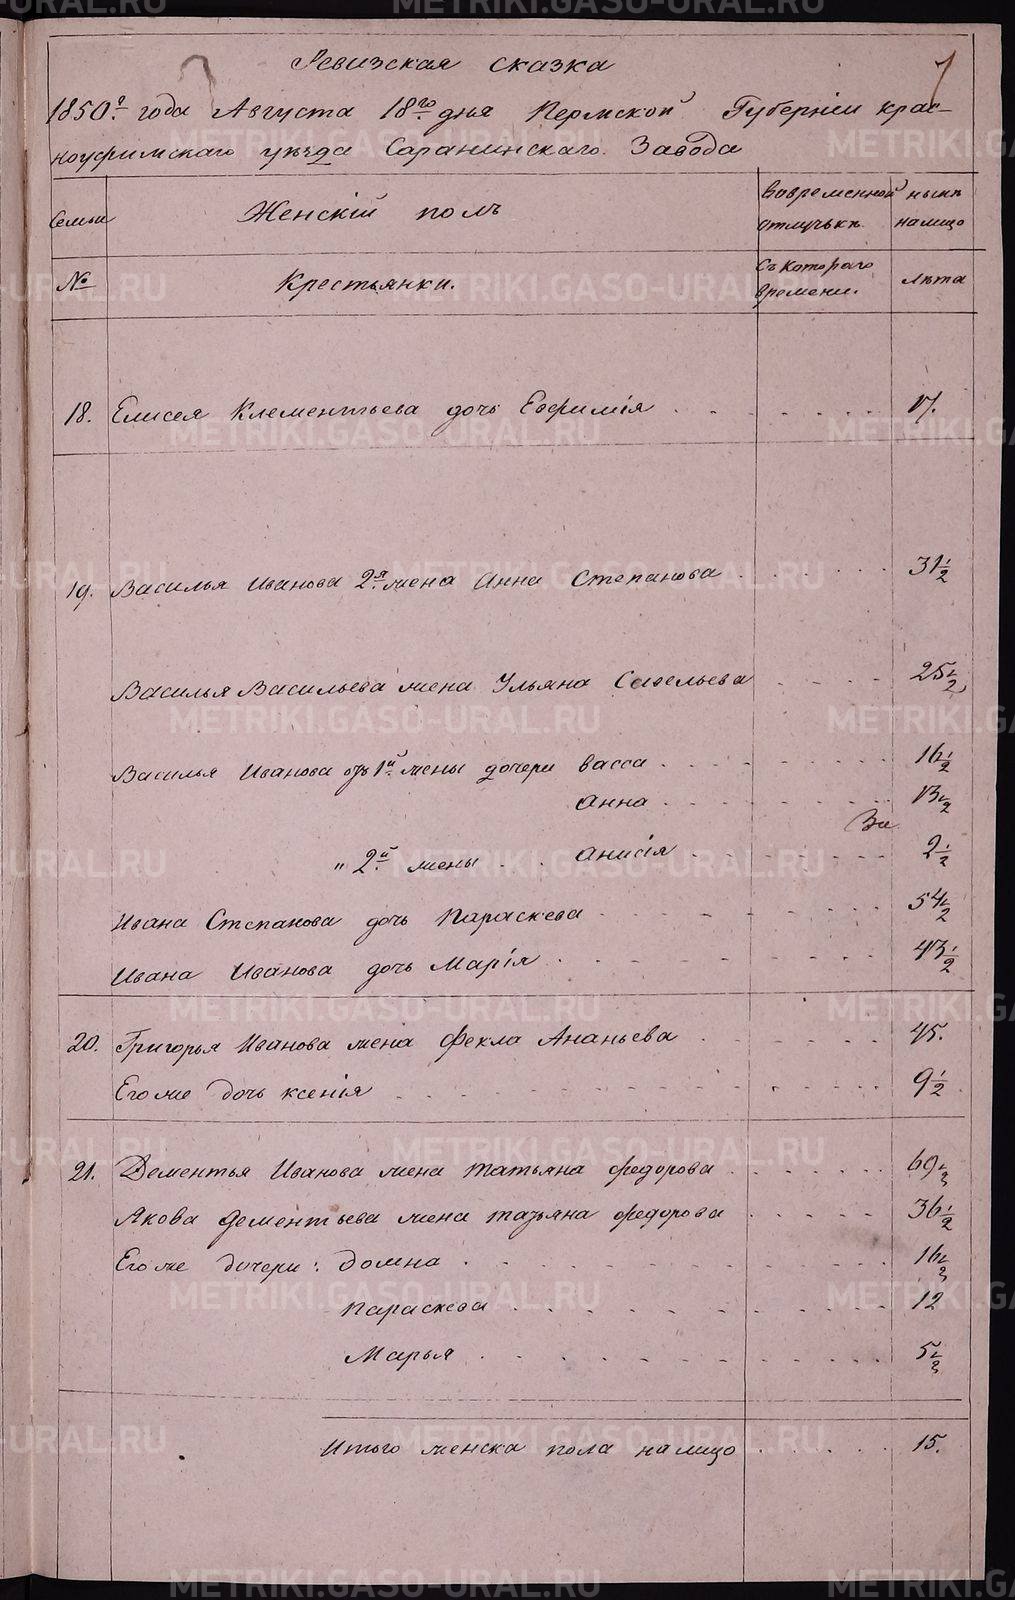 Ревизская сказка
1850го года Августа 18го дня Пермской Губернiи Крас-
ноуфимскаго уѣзда Саранинскаго Завода
Семьи Женскiй полъ Вовременной отлучькѣ ныне налицо
№ Крестьянки. Съ котораго времени. Лѣта
18. Елисея Клементьева дочь Евфимiя 17.
19. Василья Иванова 2я жена Анна Степанова 31½
Василья Васильева жена Ульяна Савельева 25½
Василья Иванова отъ 1й жены дочери Васса 16½
Анна 13½
За
„ 2й жены Анисiя 2½
Ивана Степанова дочь Параскева 54½
Ивана Иванова дочь Марiя 43½
20. Григорья Иванова жена Фекла Ананьева 45.
Его же дочь Ксенiя 9½
21. Дементья Иванова жена Татьяна Федорова 69½
Якова Дементьева жена Татьяна Федорова 36½
Его же дочери: Домна 16½
Параскева 12
Марья 5½
Итого женска пола налицо 15.
METRIKI.GASO-URAL.RU